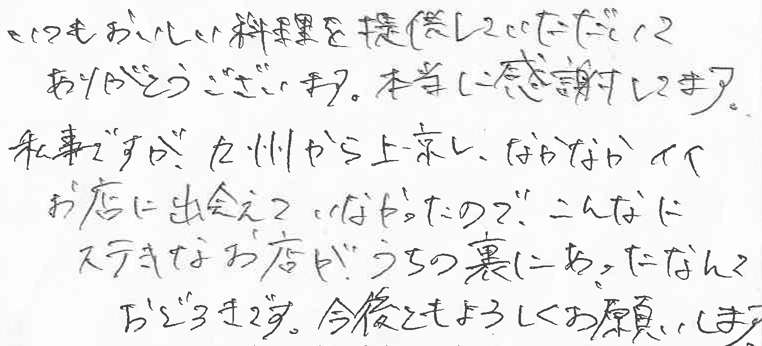 いつもおいしい料理を提供していただいて
ありがとうございます。本当に感謝してます。
私事ですが、九州から上京し、なかなかイイ
お店に出会えていなかったので、こんなに
ステキなお店が、うちの裏にあったなんて
おどろきです。今後ともよろしくお願いします